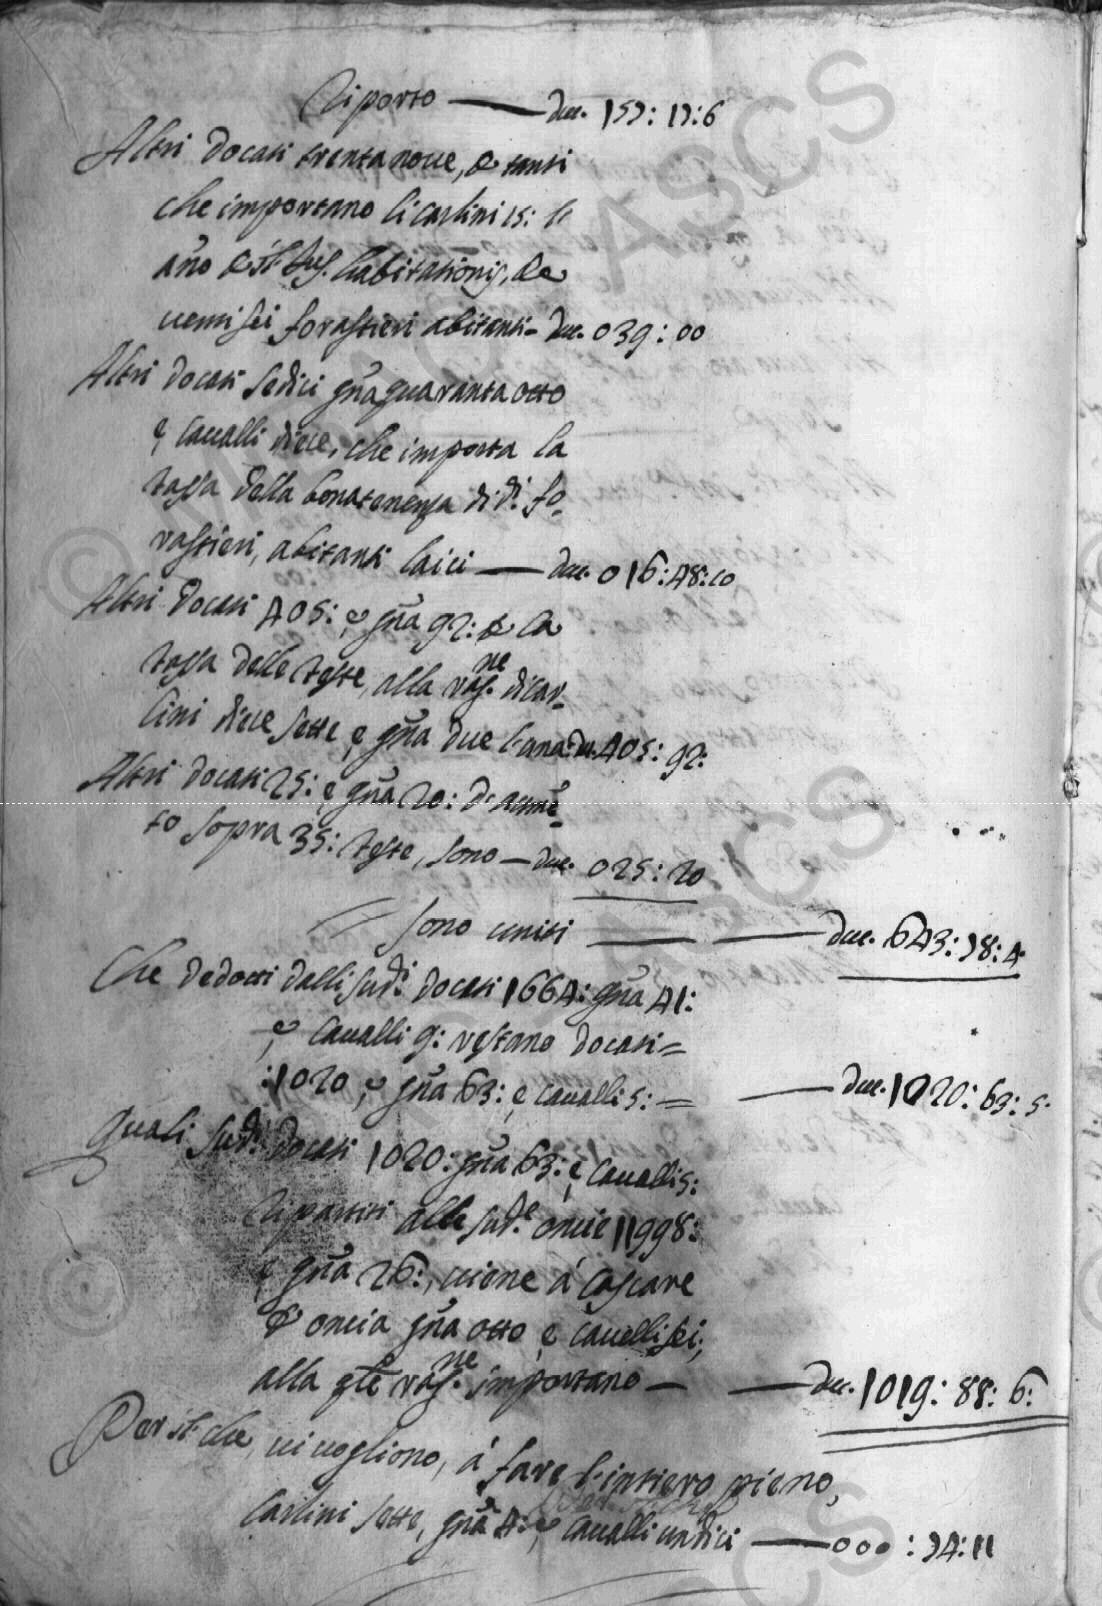 Riporto — duc. 157: 17: 6
Altri docati trentanoue, & tanti
che importano li carlini 15: l'
año & il Jus habitationis, de
uentisei forastieri abitanti - duc. 039: 00
Altri docati sedici gña quaranta otto
e caualli diece, che importa la
tassa della bonatenenza di d.i fo-
rastieri, abitanti laici — duc. 016: 48: 10
Altri docati 405: e gña 92: & la
tassa delle teste, alla rag.ne di car-
lini diece sette e gña due l'una: du. 405: 92:
Altri docati 25: e gña 20: d'aumē-
to sopra 35: teste, sono — duc. 025: 20
Sono uniti — — duc. 643: 78: 4
Che dedotti dalli sud.i docati 1664: gña 41:
e caualli 9: restano docati =
:1020, e gña 63: e caualli 5: = — duc. 1020: 63: 5.
Quali sud.i docati 1020: gña 63: e caualli 5:
ripartiti alle sud.e oncie 11998:
e gña 26:, uiene á cascare
& oncia gña otto e caualli sei,
alla q̃le rag.ne importano — — duc. 1019: 88: 6:
Per il che, ui uogliono, á fare l'intiero pieno,
Carlini sette, gña 4: e caualli undici — 000: 74: 11
© ASCS
ASCS
©
ASCS